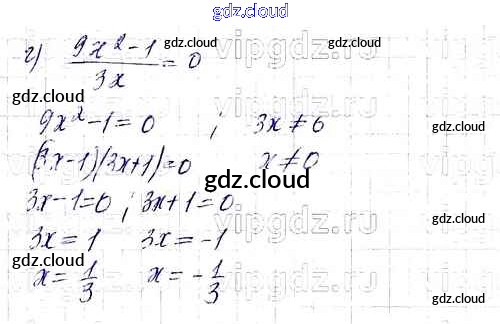 gdz.cloud
г) (9x² - 1)/(3x) = 0
9x² - 1 = 0 ; 3x ≠ 0
(3x-1)(3x+1) = 0 x ≠ 0
3x - 1 = 0 ; 3x + 1 = 0
3x = 1 3x = -1
x = 1/3 x = -1/3
gdz.cloud
gdz.cloud
gdz.cloud
gdz.cloud
gdz.cloud
gdz.cloud
gdz.cloud
gdz.cloud
gdz.cloud
vipgdz.ru
vipgdz.ru
vipgdz.ru